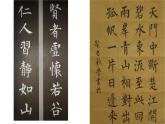 賢者虛懷若谷
仁人習靜如山
天門中斷楚江開
碧水東流至此回
兩岸青山相對出
孤帆一片日邊來